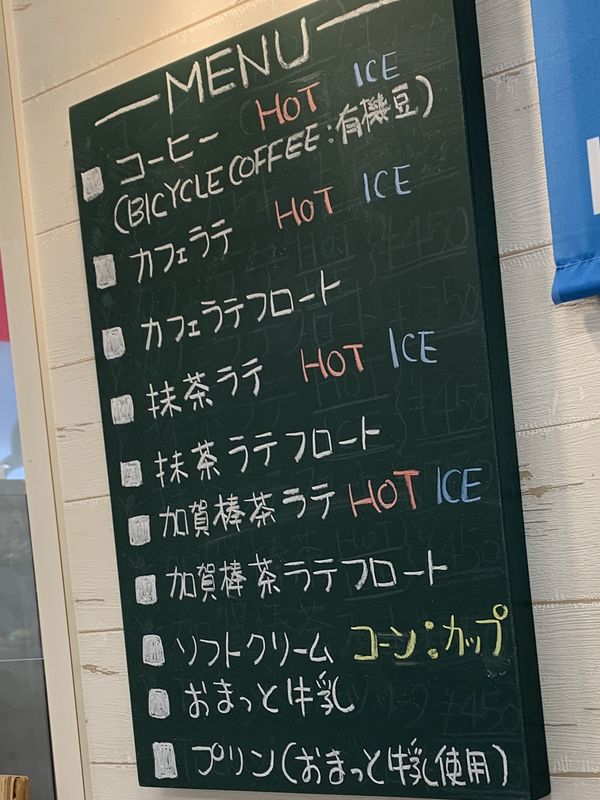 MENU
コーヒー HOT ICE
(BICYCLE COFFEE:有機豆)
カフェラテ HOT ICE
カフェラテフロート
抹茶ラテ HOT ICE
抹茶ラテフロート
加賀棒茶ラテ HOT ICE
加賀棒茶ラテフロート
ソフトクリーム コーン:カップ
おまっと牛乳
プリン(おまっと牛乳使用)